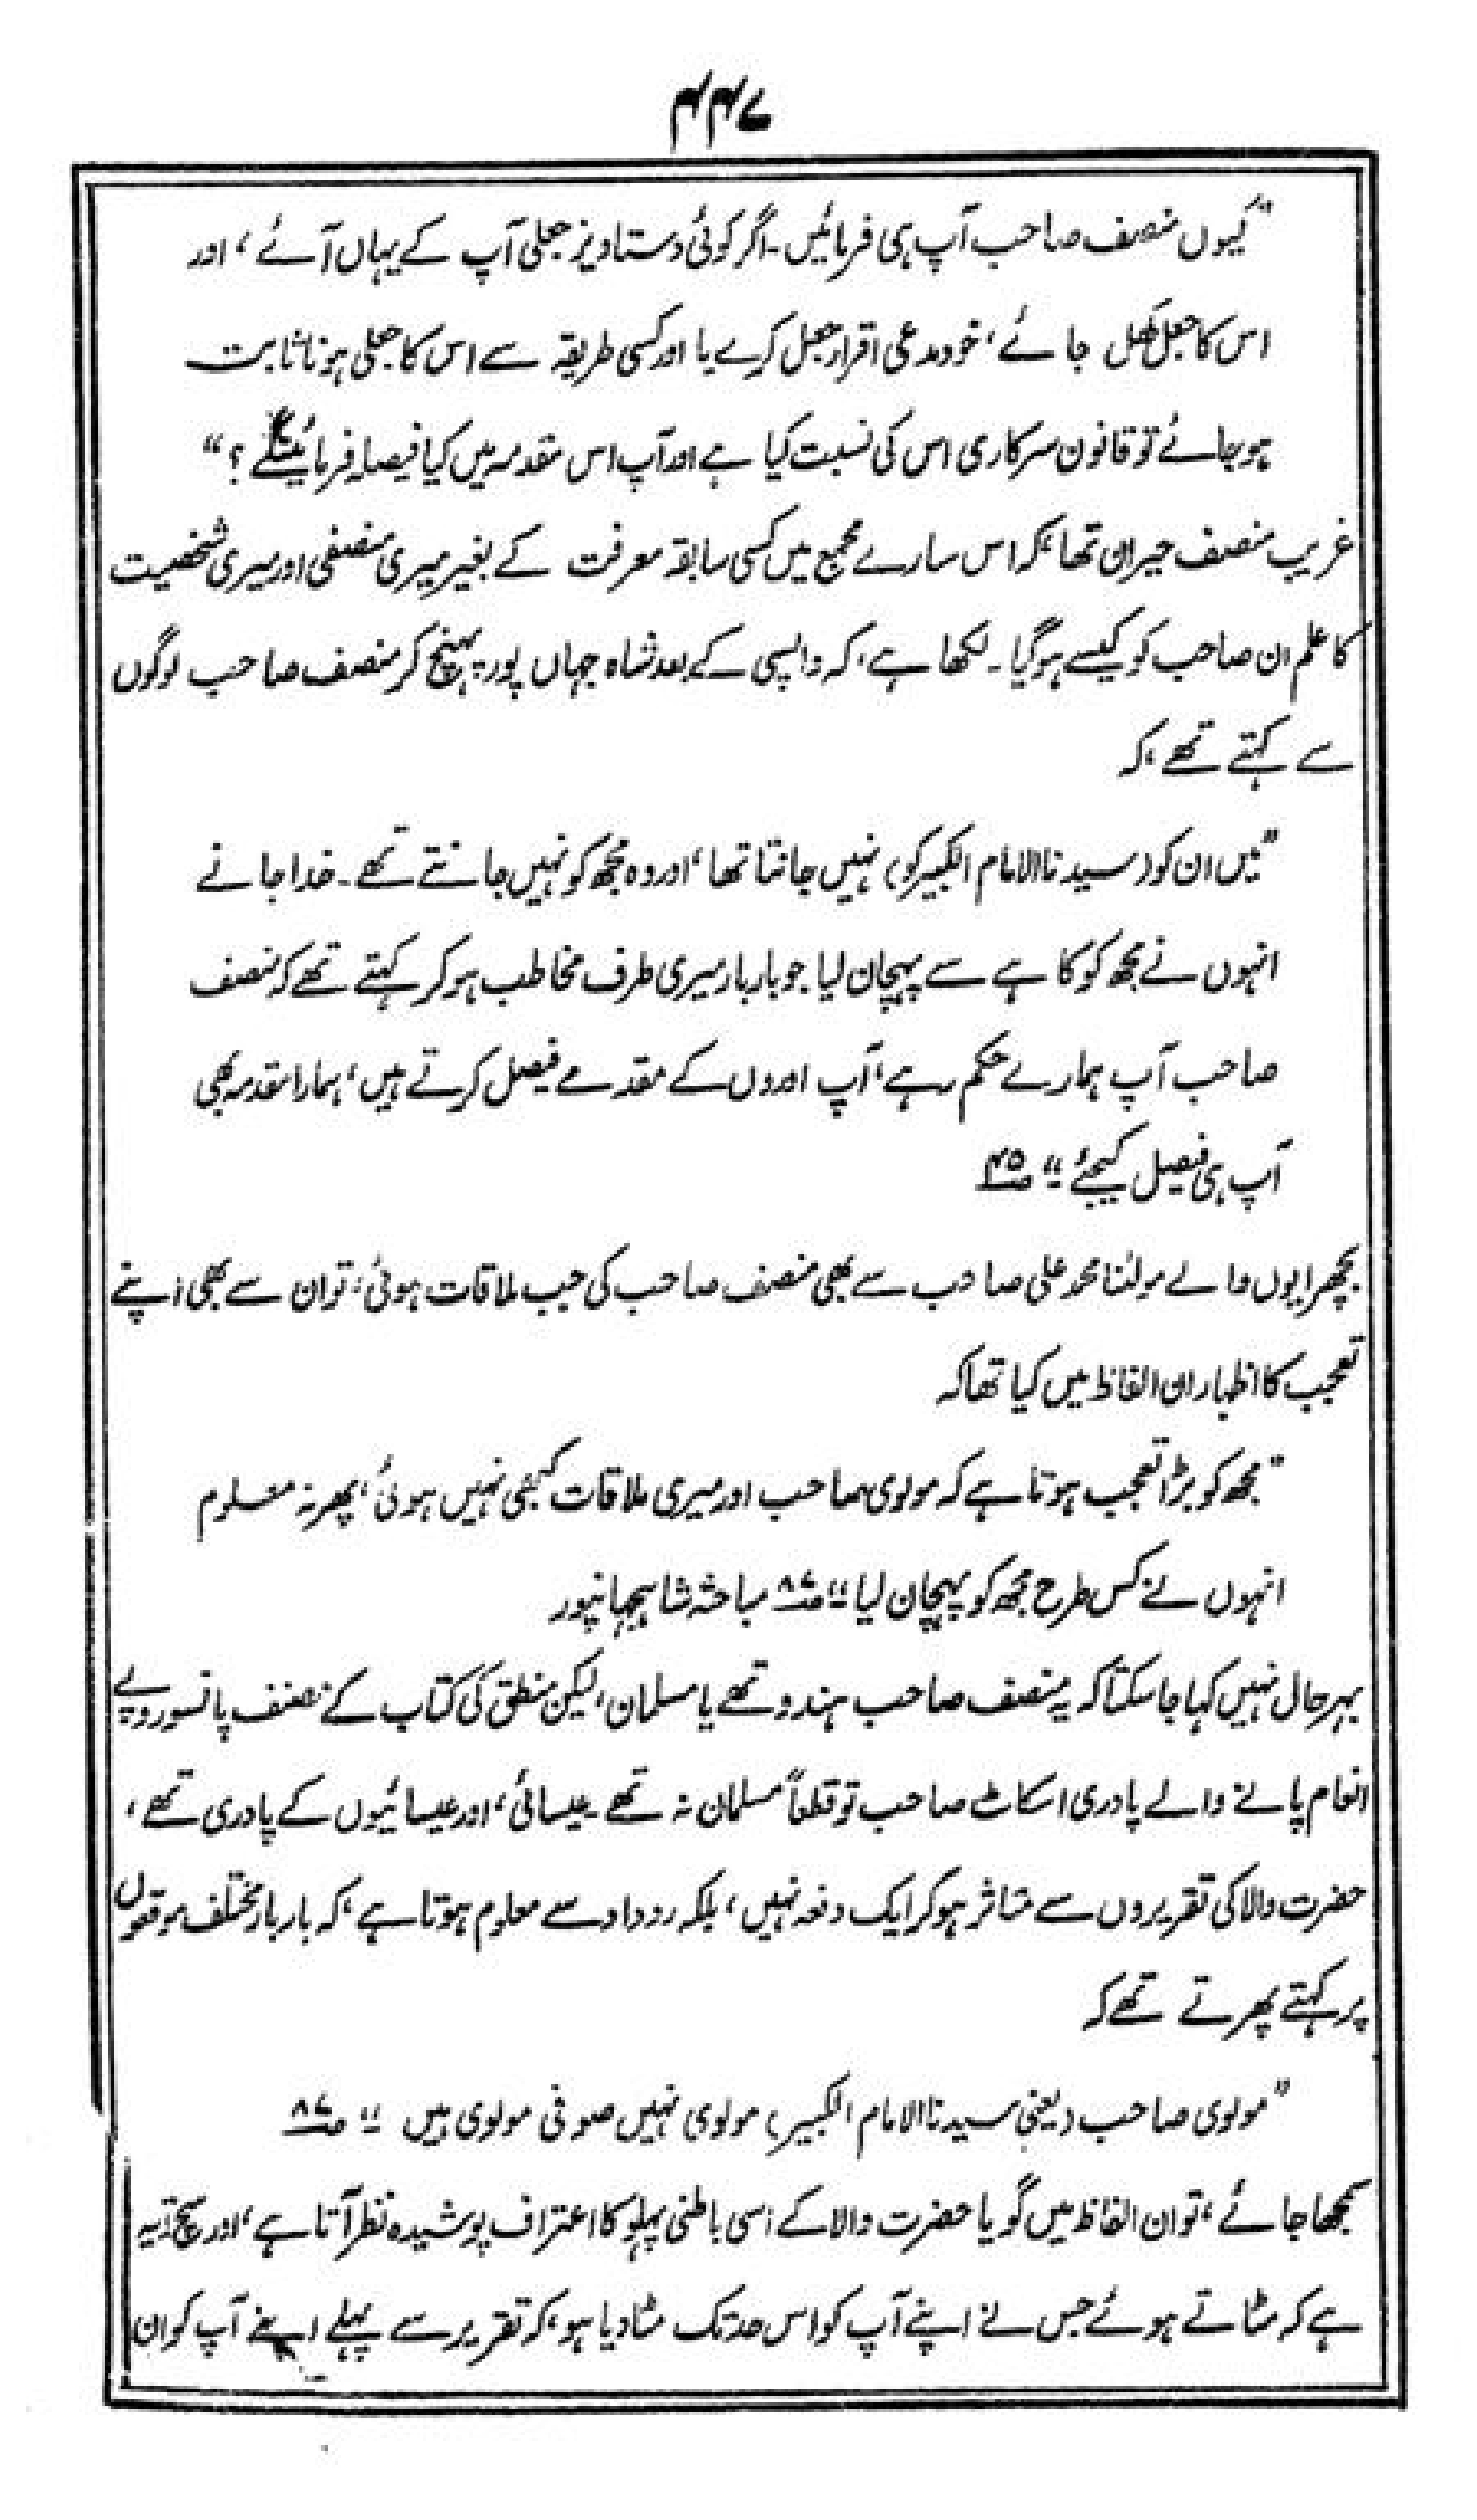 ۴۴۷
"کیوں منصف صاحب آپ ہی فرمائیں۔ اگر کوئی دستاویز جعلی آپ کے یہاں آئے، اور
اس کا جعل کھل جائے، خود مدعی اقرار جعل کرے یا اور کسی طریقہ سے اس کا جعلی ہونا ثابت
ہو جائے تو قانون سرکاری اس کی نسبت کیا ہے اور آپ اس مقدمہ میں کیا فیصلہ فرمائیںگے؟"
غریب منصف حیران تھا، کہ اس سارے مجمع میں کسی سابقہ معرفت کے بغیر میری منصفی اور میری شخصیت
کا علم ان صاحب کو کیسے ہوگیا۔ لکھا ہے، کہ واپسی کے بعد شاہ جہاں پور پہنچ کر منصف صاحب لوگوں
سے کہتے تھے، کہ
"میں ان کو (سیدنا الامام الکبیر کو) نہیں جانتا تھا، اور وہ مجھ کو نہیں جانتے تھے۔ خدا جانے
انہوں نے مجھ کو کاہے سے پہچان لیا جو بار بار میری طرف مخاطب ہو کر کہتے تھے کہ منصف
صاحب آپ ہمارے حکم رہے، آپ اوروں کے مقدمے فیصل کرتے ہیں، ہمارا مقدمہ بھی
آپ ہی فیصل کیجئے" ص۴۵
بچھرایوں والے مولٰنا محمد علی صاحب سے بھی منصف صاحب کی جب ملاقات ہوئی، تو ان سے بھی اپنے
تعجب کا اظہار ان الفاظ میں کیا تھا کہ
"مجھ کو بڑا تعجب ہوتا ہے کہ مولوی صاحب اور میری ملاقات کبھی نہیں ہوئی، پھر نہ معلوم
انہوں نے کس طرح مجھ کو پہچان لیا" ص۸۷ مباحثہ شاہجہانپور
بہرحال نہیں کہا جا سکتا کہ یہ منصف صاحب ہندو تھے یا مسلمان، لیکن منطق کی کتاب کے مصنف پانسو روپے
انعام پانے والے پادری اسکاٹ صاحب تو قطعاً مسلمان نہ تھے۔ عیسائی، اور عیسائیوں کے پادری تھے،
حضرت والا کی تقریروں سے متاثر ہو کر ایک دفعہ نہیں، بلکہ روداد سے معلوم ہوتا ہے، کہ بار بار مختلف موقعوں
پر کہتے پھرتے تھے کہ
"مولوی صاحب (یعنی سیدنا الامام الکبیر) مولوی نہیں صوفی مولوی ہیں" ص۸۷
سمجھا جائے، تو ان الفاظ میں گویا حضرت والا کے اسی باطنی پہلو کا اعتراف پوشیدہ نظر آتا ہے، اور سچ تو یہ
ہے کہ مٹاتے ہوئے جس نے اپنے آپ کو اس حد تک مٹا دیا ہو، کہ تقریر سے پہلے اپنے آپ کو ان